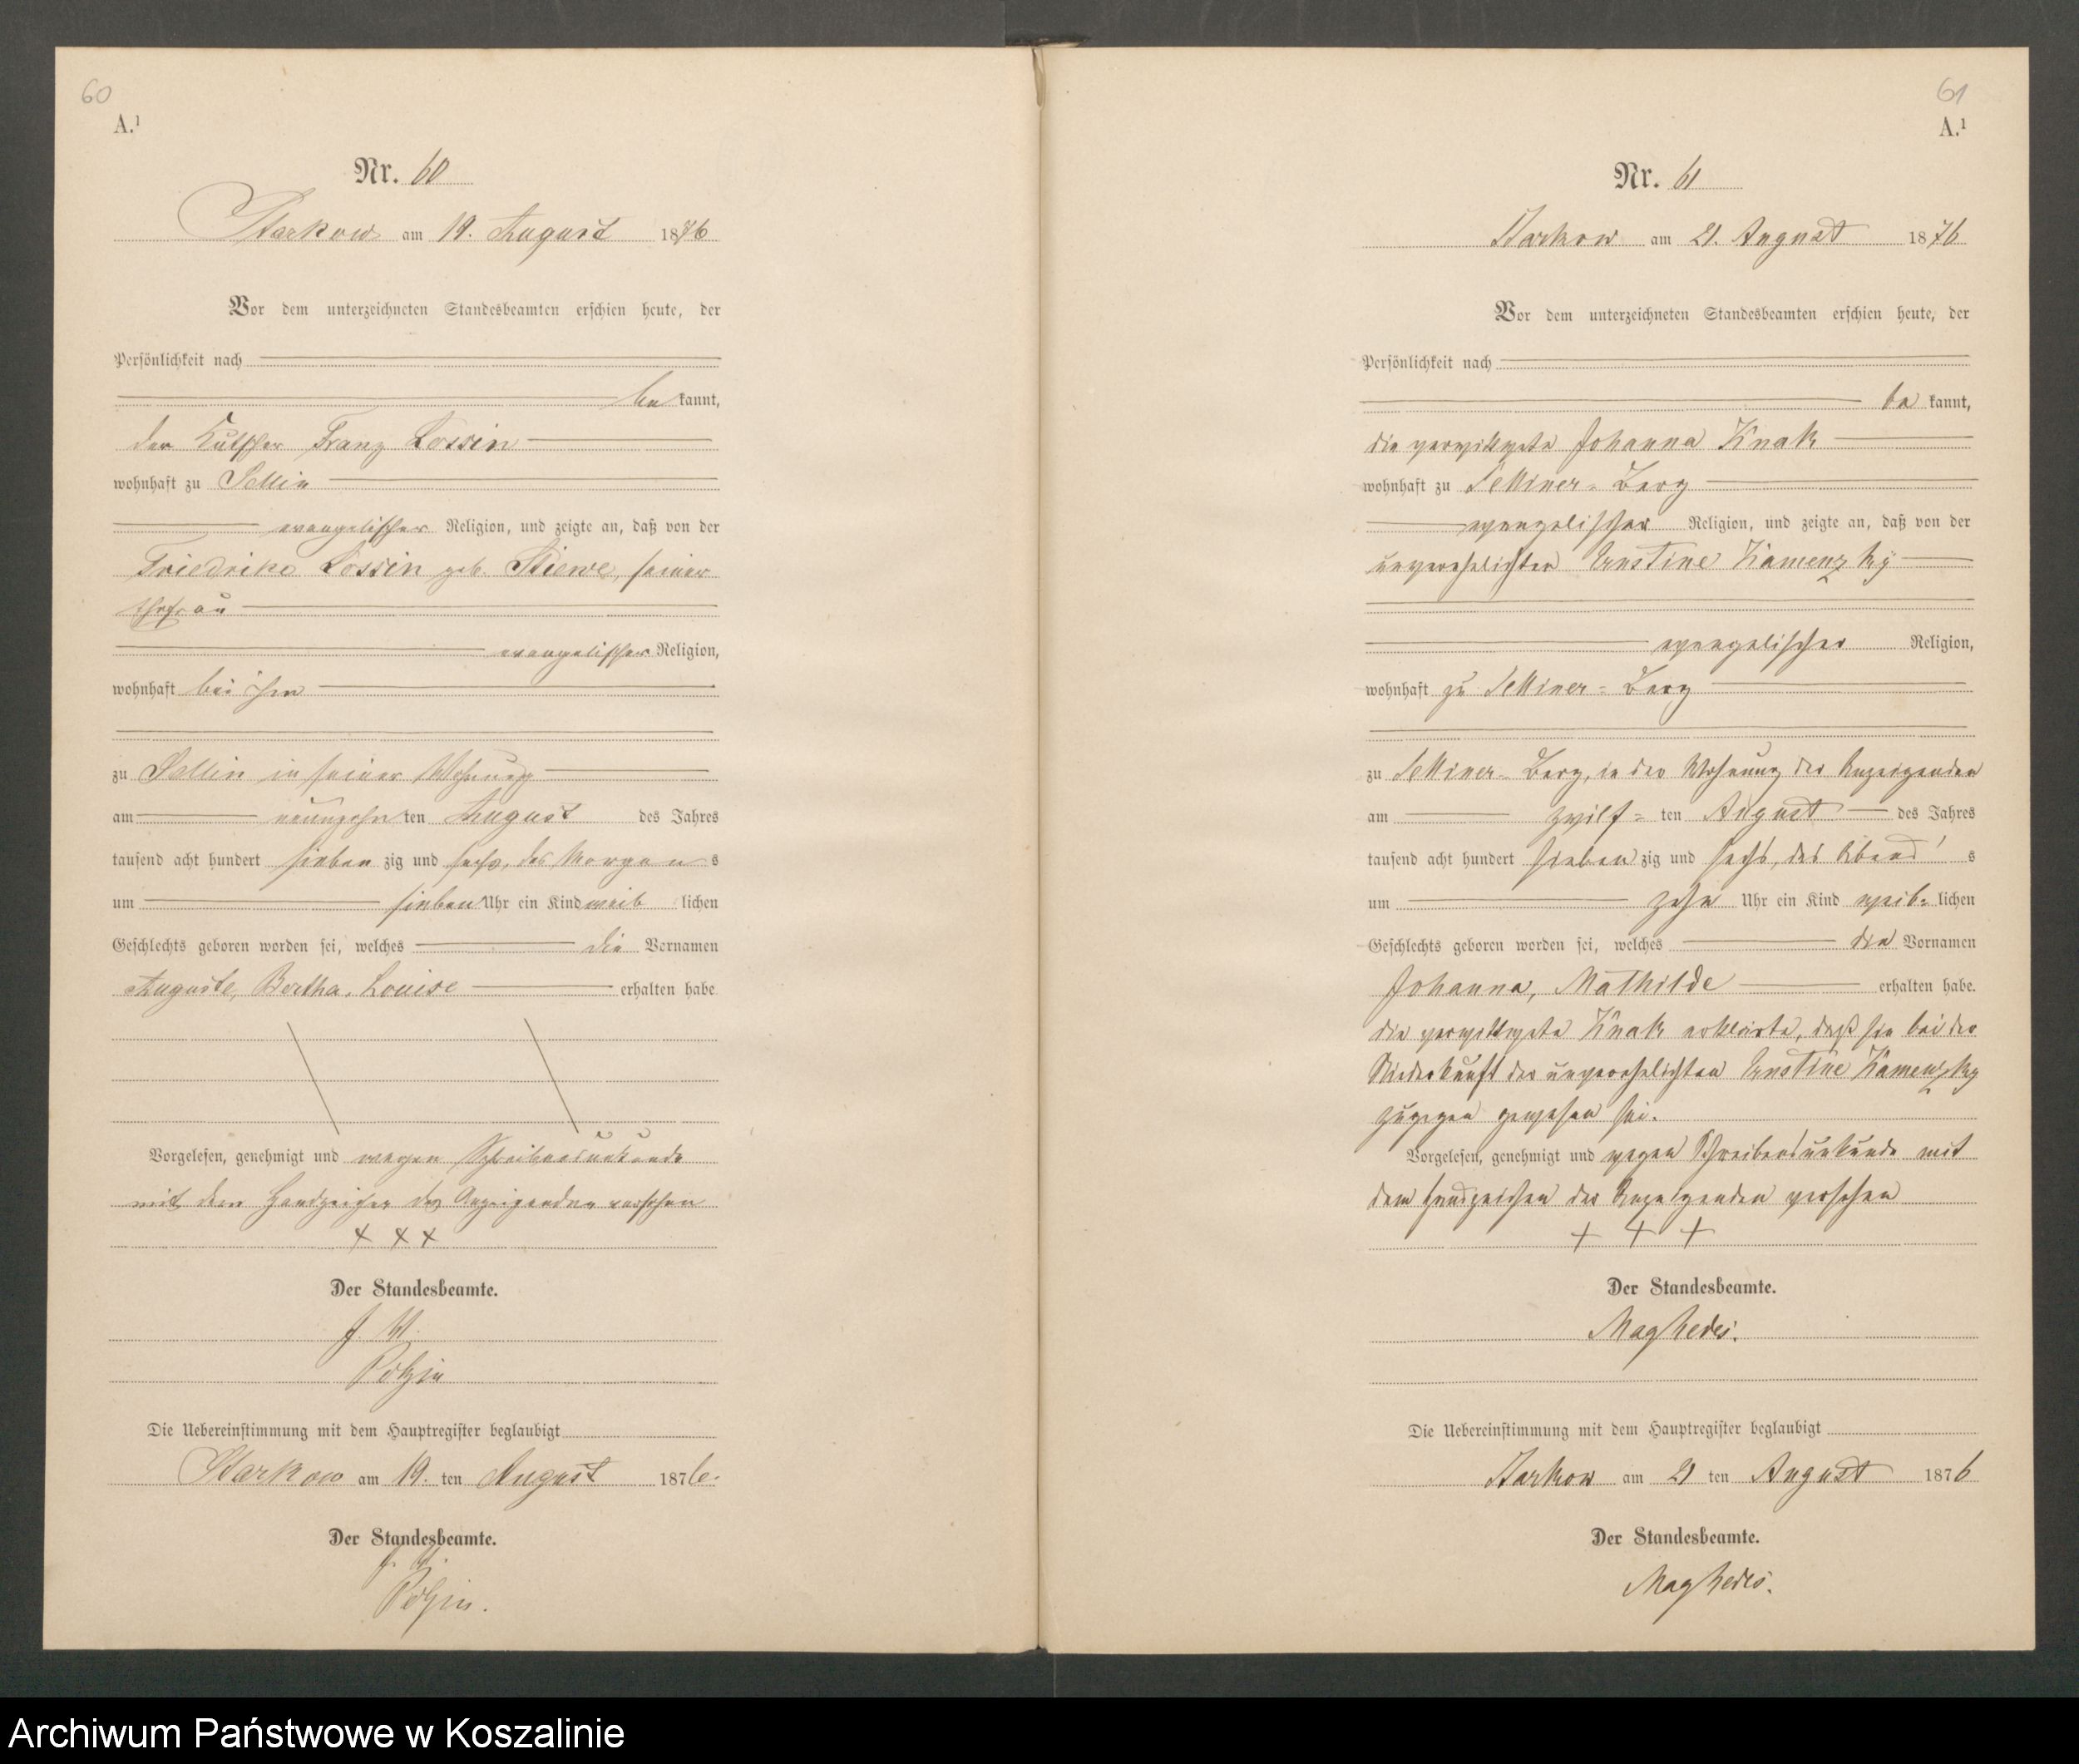 60
A.¹
Nr. 60
Starkow am 19. August 1876
Vor dem unterzeichneten Standesbeamten erschien heute, der
Persönlichkeit nach
be kannt,
der Kutscher Franz Lossin
wohnhaft zu Sellin
evangelischer Religion, und zeigte an, daß von der
Friedrike Lossin geb. Stiewe, seiner
Ehefrau
evangelischer Religion,
wohnhaft bei ihm
zu Sellin in seiner Wohnung
am neunzehn ten August des Jahres
tausend acht hundert sieben zig und sechs, des Morgen s
um sieben Uhr ein Kind weib lichen
Geschlechts geboren worden sei, welches die Vornamen
Auguste, Bertha, Louise erhalten habe
Vorgelesen, genehmigt und wegen Schreibensunkunde
mit dem Handzeichen des Anzeigenden versehen
+ + +
Der Standesbeamte.
J. V.
Polzin
Die Uebereinstimmung mit dem Hauptregister beglaubigt
Starkow am 19. ten August 1876.
Der Standesbeamte.
J. V.
Polzin.
61
A.¹
Nr. 61
Starkow am 21. August 1876
Vor dem unterzeichneten Standesbeamten erschien heute, der
Persönlichkeit nach
be kannt,
die verwittwete Johanna Knak
wohnhaft zu Selliner-Berg
evangelischer Religion, und zeigte an, daß von der
unverehelichten Ernstine Kamenzky
evangelischer Religion,
wohnhaft zu Selliner-Berg
zu Selliner-Berg, in der Wohnung der Anzeigenden
am zwölf- ten August des Jahres
tausend acht hundert sieben zig und sechs, des Abend s
um zehn Uhr ein Kind weib- lichen
Geschlechts geboren worden sei, welches die Vornamen
Johanna, Mathilde erhalten habe.
die verwittwete Knak erklärte, daß sie bei der
Niederkunft der unverehelichten Ernstine Kamenzky
zugegen gewesen sei.
Vorgelesen, genehmigt und wegen Schreibensunkunde mit
dem Handzeichen der Anzeigenden versehen
+ + +
Der Standesbeamte.
Die Uebereinstimmung mit dem Hauptregister beglaubigt
Starkow am 21 ten August 1876
Der Standesbeamte.
Archiwum Państwowe w Koszalinie